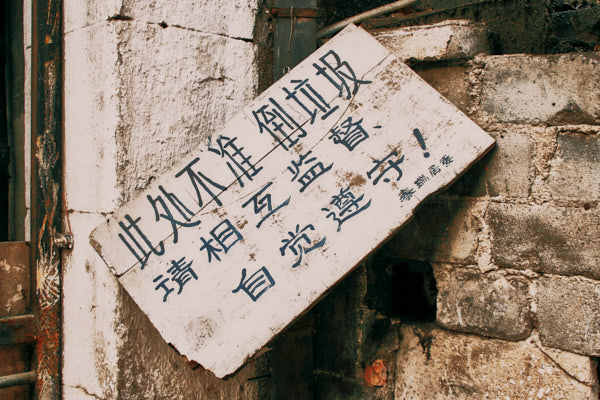 此处不准倒垃圾
请相互监督、
自觉遵守!
居委